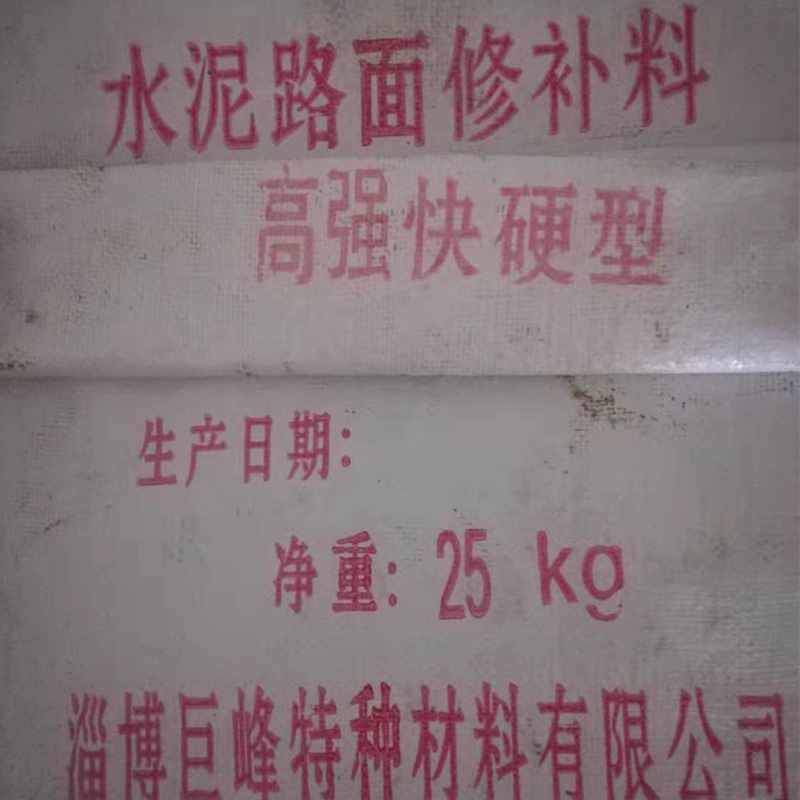 水泥路面修补料
高强快硬型
生产日期:
净重: 25 kg
淄博巨峰特种材料有限公司